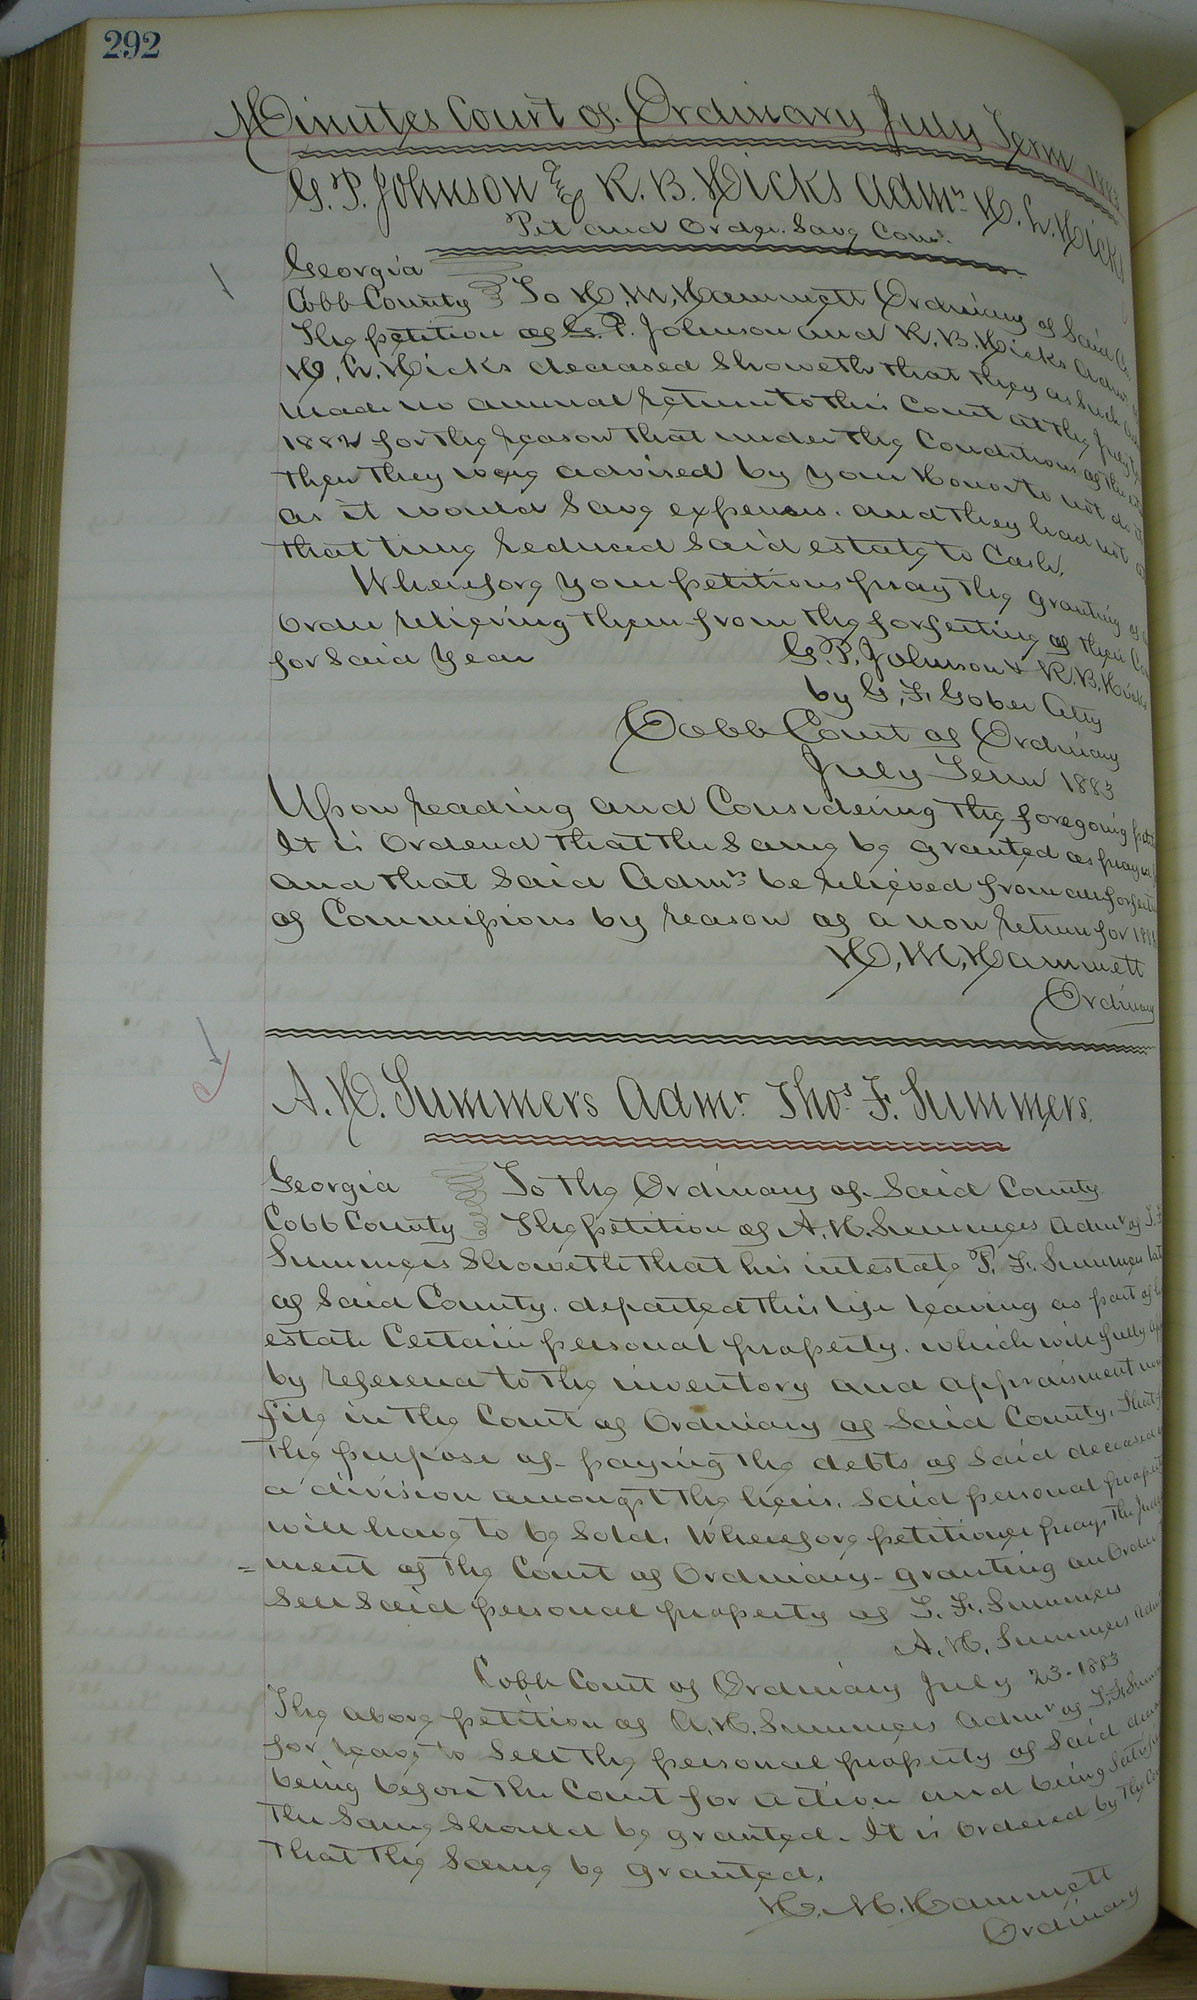 292
Minutes Court of Ordinary July Term 1883
G. P. Johnson and R. B. Hicks Admrs H. L. Hicks
Pet and Order. Savg Coms.
Georgia
Cobb County To H. M. Hammett Ordinary of Said Co
The petition of G. P. Johnson and R. B. Hicks Admrs
H. L. Hicks deceased Showeth that they as Such
made no annual return to this Court at the July
1882 for the reason that under the Conditions of the
then they were advised by your Honor to not do it
as it would Save expenses. and they had not
that time reduced Said estate to Cash.
Wherefore your petitions pray the granting of
Order relieving them from the forfeiting of their
for Said year G. P. Johnson & R. B. Hicks
by G. F. Gober Atty
Cobb Court of Ordinary
July Term 1883
Upon reading and Considering the foregoing
It is Ordered that the Same be granted as
and that Said Admrs be relieved from all
of Commissions by reason of a non return for
H. M. Hammett
Ordinary
A. H. Summers Admr. Thos. F. Summers.
Georgia To the Ordinary of Said County
Cobb County The petition of A. H. Summers Admr of
Summers Showeth that his intestate T. F. Summers
of Said County. departed this life leaving as part of
estate Certain personal property. which will fully
by referenc to the inventory and appraisment
file in the Court of Ordinary of Said County. That
the purpose of paying the debts of Said deceased
a division amongst the heirs. Said personal
will have to be Sold. Wherefore petitioner prays the
=ment of the Court of Ordinary granting an Order
Sell Said personal property of T. F. Summers
A. H. Summers
Cobb Court of Ordinary July 23-1883
The above petition of A. H. Summers Admr of T. F.
for leave to Sell the personal property of Said
being before the Court for action and being
the Same Should be granted. It is Ordered by the
that the Same be granted.
H. M. Hammett
Ordinary